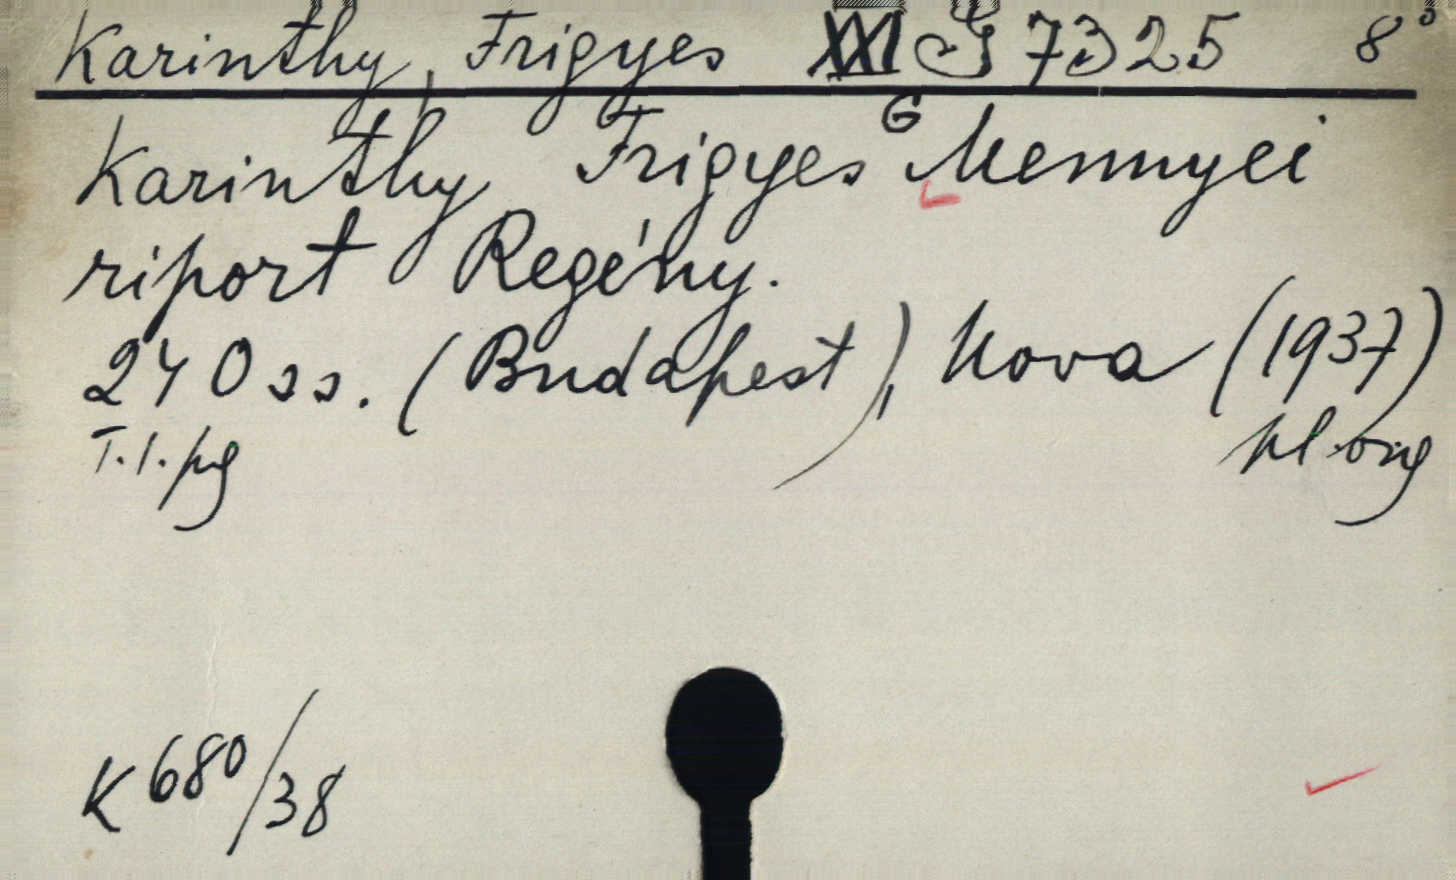 Karinthy, Frigyes XXI G 7325 8°
G
Karinthy Frigyes Mennyei
riport Regény.
240 ss. (Budapest), Nova (1937)
T.l.pg pl.ong
K 680/38